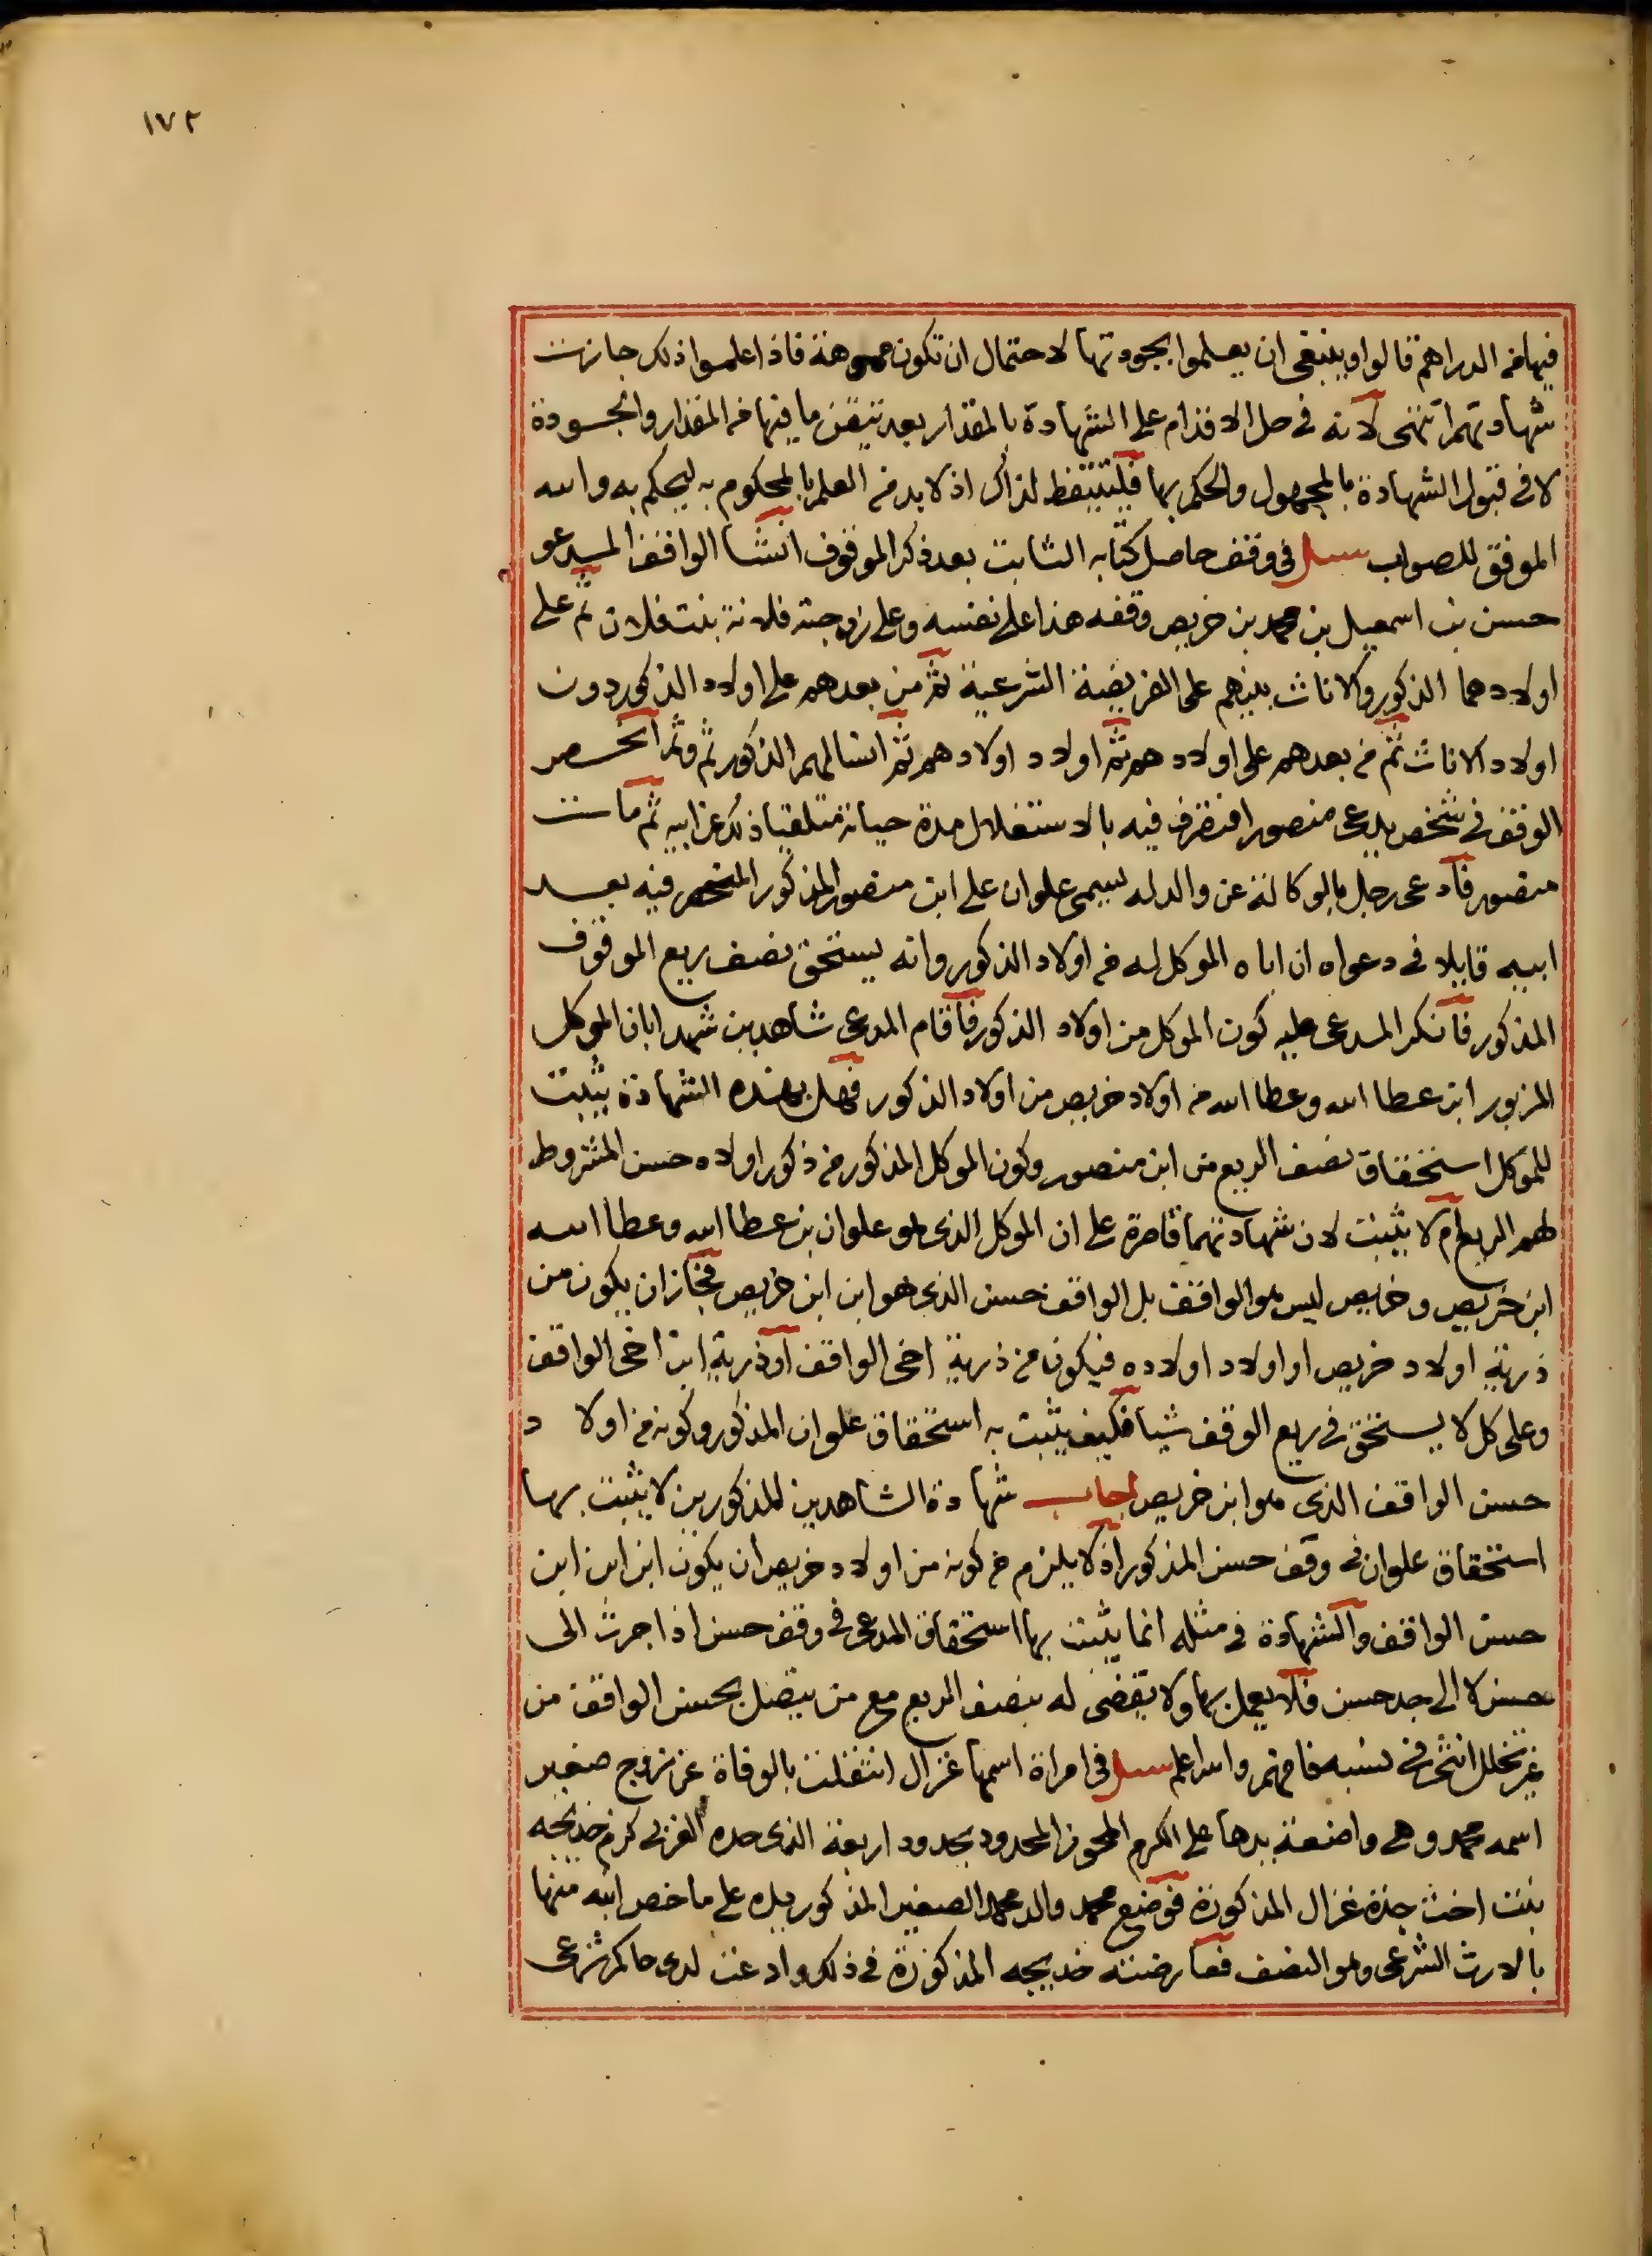 ١٧٢
فيها من الدراهم قالوا وينبغي ان يعلموا بجودتها لاحتمال ان تكون مموهة فاذا علموا ذلك جازت
شهادتهم انتهى لانه في حل الاقدام على الشهادة بالمقدار بعد تيقن ما فيها من المقدار والجودة
لا في قبول الشهادة بالمجهول والحكم بها فليتيقظ لذلك اذ لا بد من العلم بالمحكوم به ليحكم به والله
الموفق للصواب سئل في وقف حاصل كتابه الثابت بعد ذكر الموقوف انشا الواقف المدعو
حسن بن اسمعيل بن محمد بن خريص وقفه هذا على نفسه وعلى زوجته فلانة بنت فلان ثم على
اولادهما الذكور والاناث بينهم على الفريضة الشرعية ثم من بعدهم على اولاد الذكور دون
اولاد الاناث ثم من بعدهم على اولادهم ثم اولاد اولادهم ثم انسالهم الذكور ثم وثم انحصر
الوقف في شخص يدعى منصورا فتصرف فيه بالاستغلال مدة حياته متلقيا ذلك عن ابيه ثم مات
منصور فادعى رجل بالوكالة عن والد له يسمى علوان على ابن منصور المذكور المنحصر فيه بعد
ابيه قايلا في دعواه ان اباه الموكل له من اولاد الذكور وانه يستحق نصف ريع الموقوف
المذكور فانكر المدعى عليه كون الموكل من اولاد الذكور فاقام المدعي شاهدين شهدا بان الموكل
المزبور ابن عطا الله وعطا الله من اولاد خريص من اولاد الذكور فهل بهذه الشهادة يثبت
للموكل استحقاق نصف الريع من ابن منصور وكون الموكل المذكور من ذكور اولاد حسن المشروط
لهم الريع ام لا يثبت لان شهادتهما قاصرة على ان الموكل الذي هو علوان بن عطا الله وعطا الله
ابن خريص وخريص ليس هو الواقف بل الواقف حسن الذي هو ابن ابن خريص فجاز ان يكون من
ذرية اولاد خريص او اولاد اولاده فيكون من ذرية اخي الواقف او ذرية ابن اخي الواقف
وعلى كل لا يستحق في ريع الوقف شيا فكيف يثبت به استحقاق علوان المذكور وكونه من اولاد
حسن الواقف الذي هو ابن خريص اجاب شهادة الشاهدين المذكورين لا يثبت بها
استحقاق علوان في وقف حسن المذكور اذ لا يلزم من كونه من اولاد خريص ان يكون ابن ابن ابن
حسن الواقف والشهادة في مثله انما يثبت بها استحقاق المدعي في وقف حسن اذا جرت الى
حسن لا الى جد حسن فلا يعمل بها ولا يقضى له بنصف الريع مع من يتصل بحسن الواقف من
غير تخلل انثى في نسبه فافهم والله اعلم سئل في امراة اسمها غزال انتقلت بالوفاة عن زوج صغير
اسمه محمد وهي واضعة يدها على الكرم المحوز المحدود بحدود اربعة الذي حده الغربي كرم خديجه
بنت اخت جدة غزال المذكورة فوضع محمد والد محمد الصغير المذكور يده على ما خص ابنه منها
بالارث الشرعي وهو النصف فعارضته خديجه المذكورة في ذلك وادعت لدى حاكم شرعي